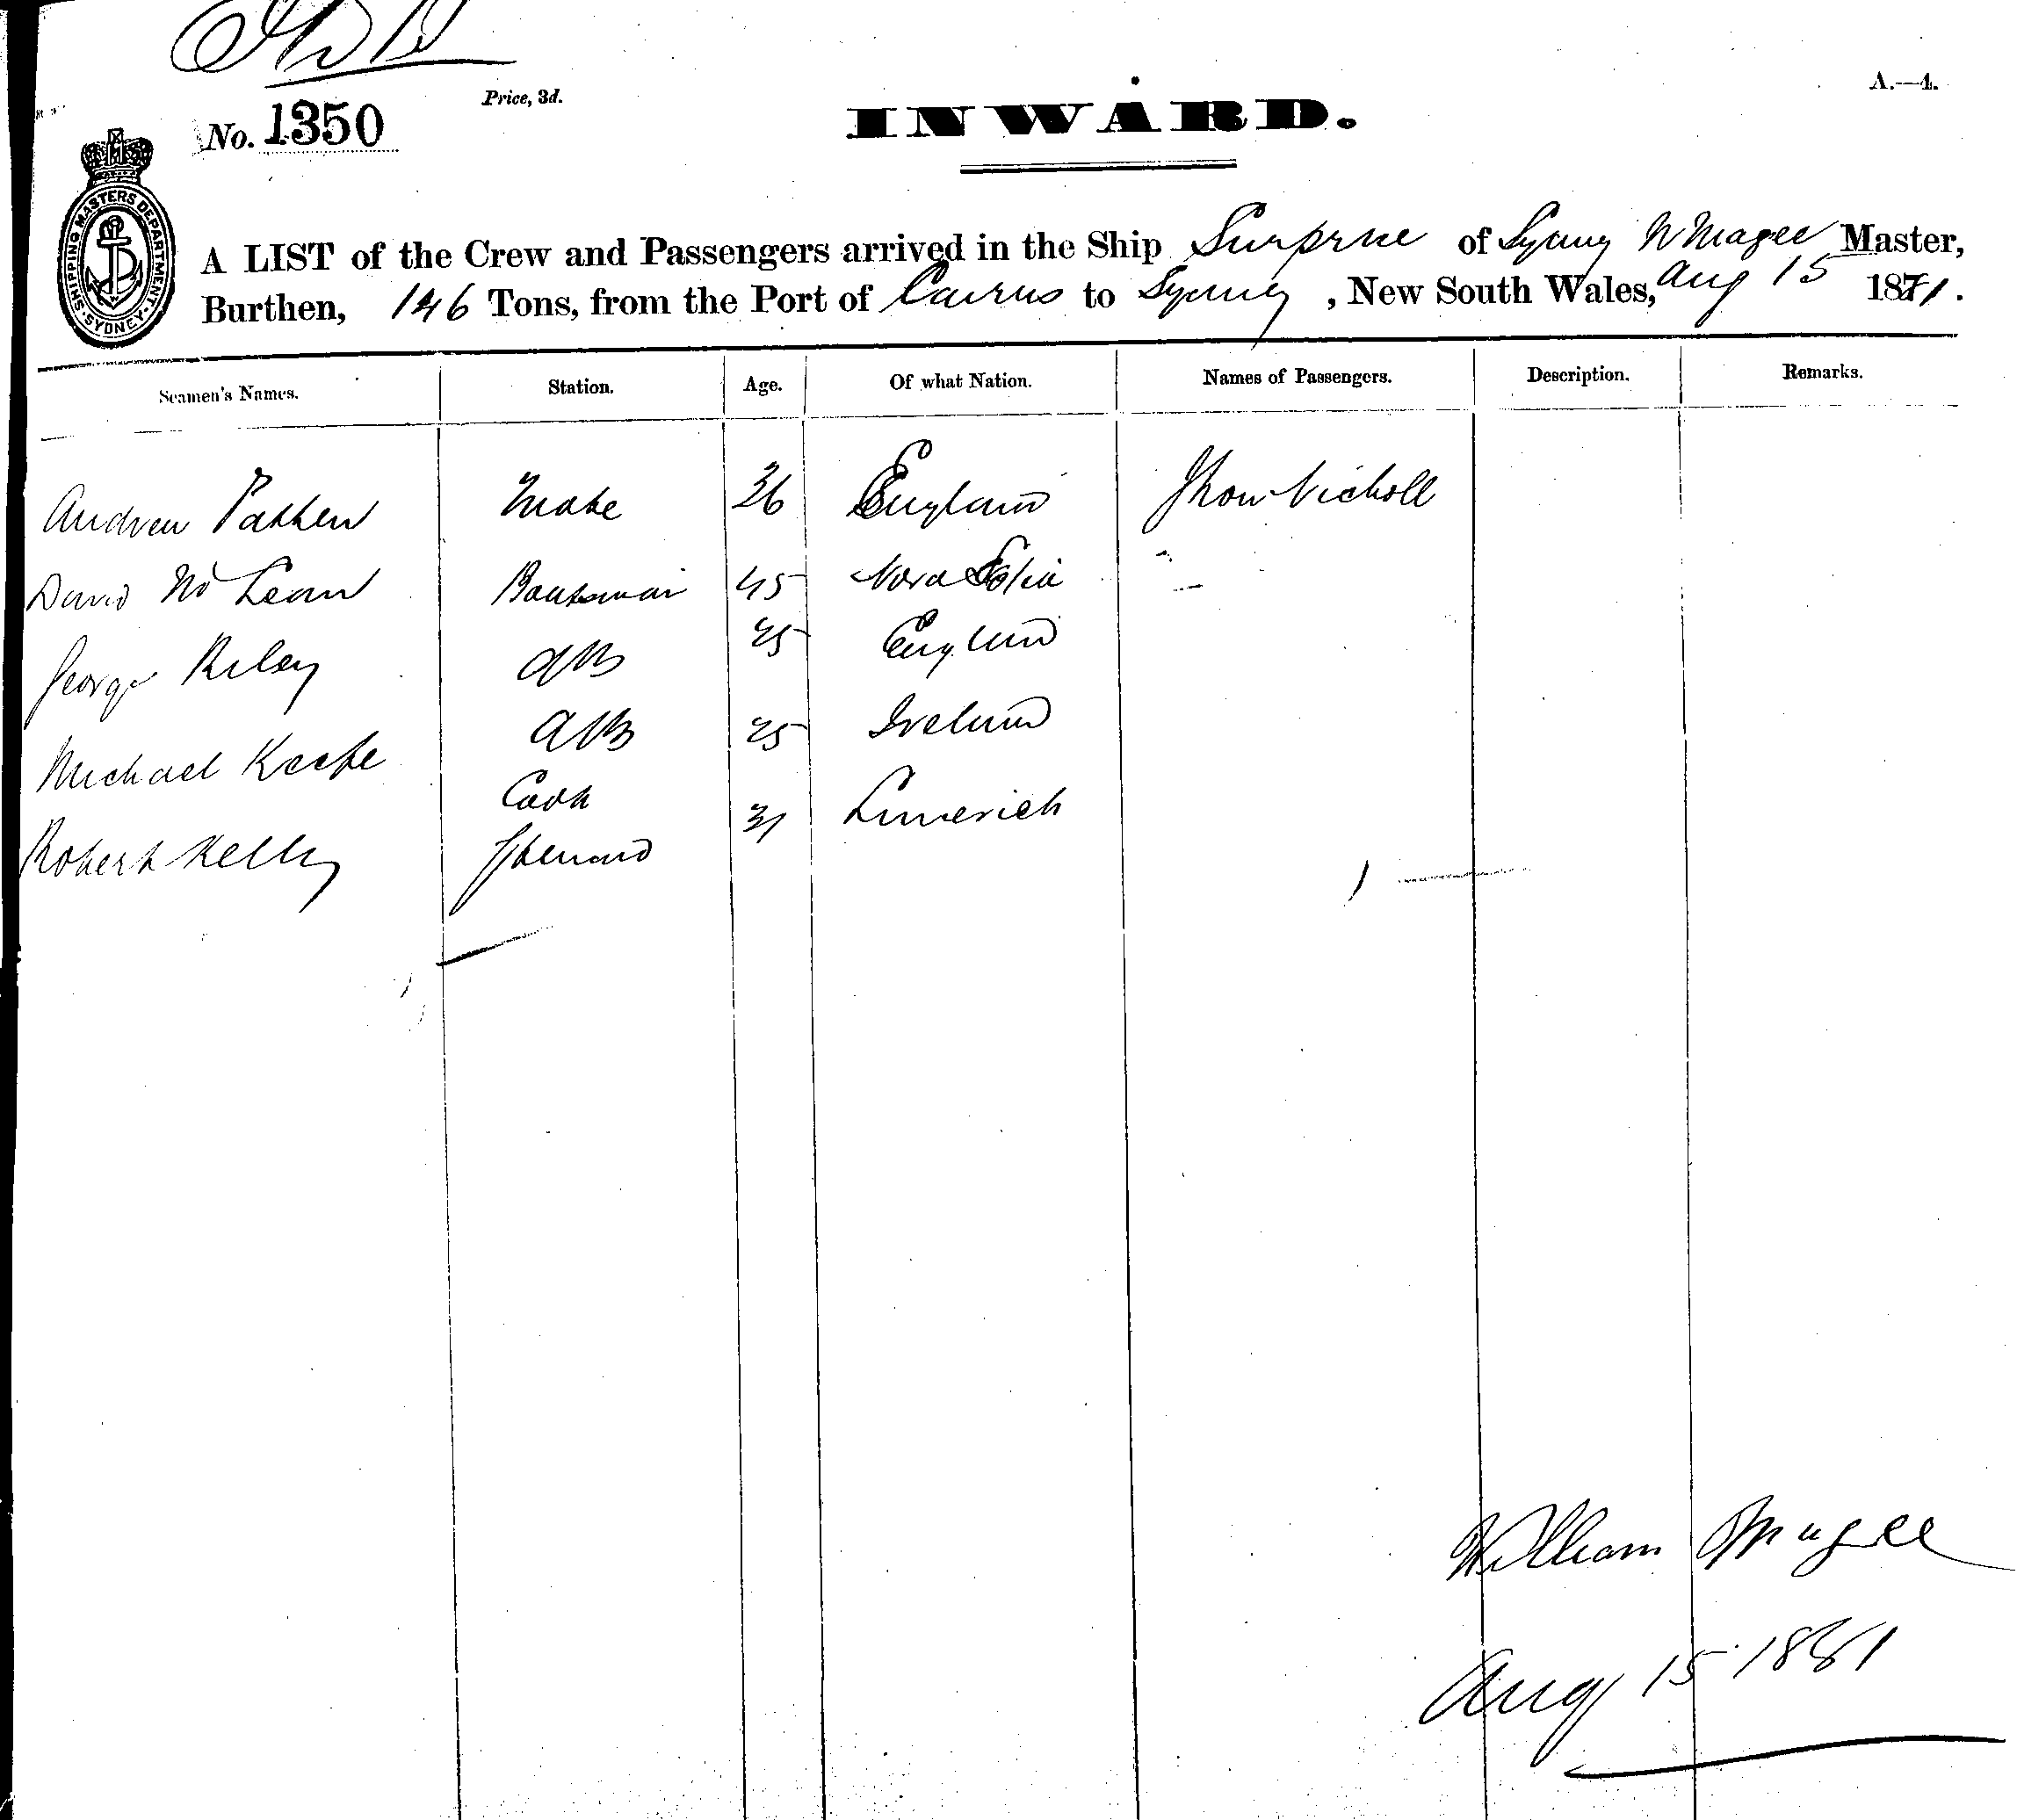 No. 1350
Price, 3d.
INWARD.
A.—4.
SHIPPING MASTERS DEPARTMENT · SYDNEY ·
A LIST of the Crew and Passengers arrived in the Ship Surprise of Sydney W Magee Master,
Burthen, 146 Tons, from the Port of Cairns to Sydney, New South Wales, Aug 15 1881.
Seamen's Names. Station. Age. Of what Nation. Names of Passengers. Description. Remarks.
Andrew Patten Mate 36 England Jhon Nicholl
David Mc Lean Boatswain 45 Nova Scotia
George Riley AB 25 England
Michael Keefe AB 25 Ireland
Robert Kelly Cook Steward 31 Limerick
1
William Magee
Aug 15 1881